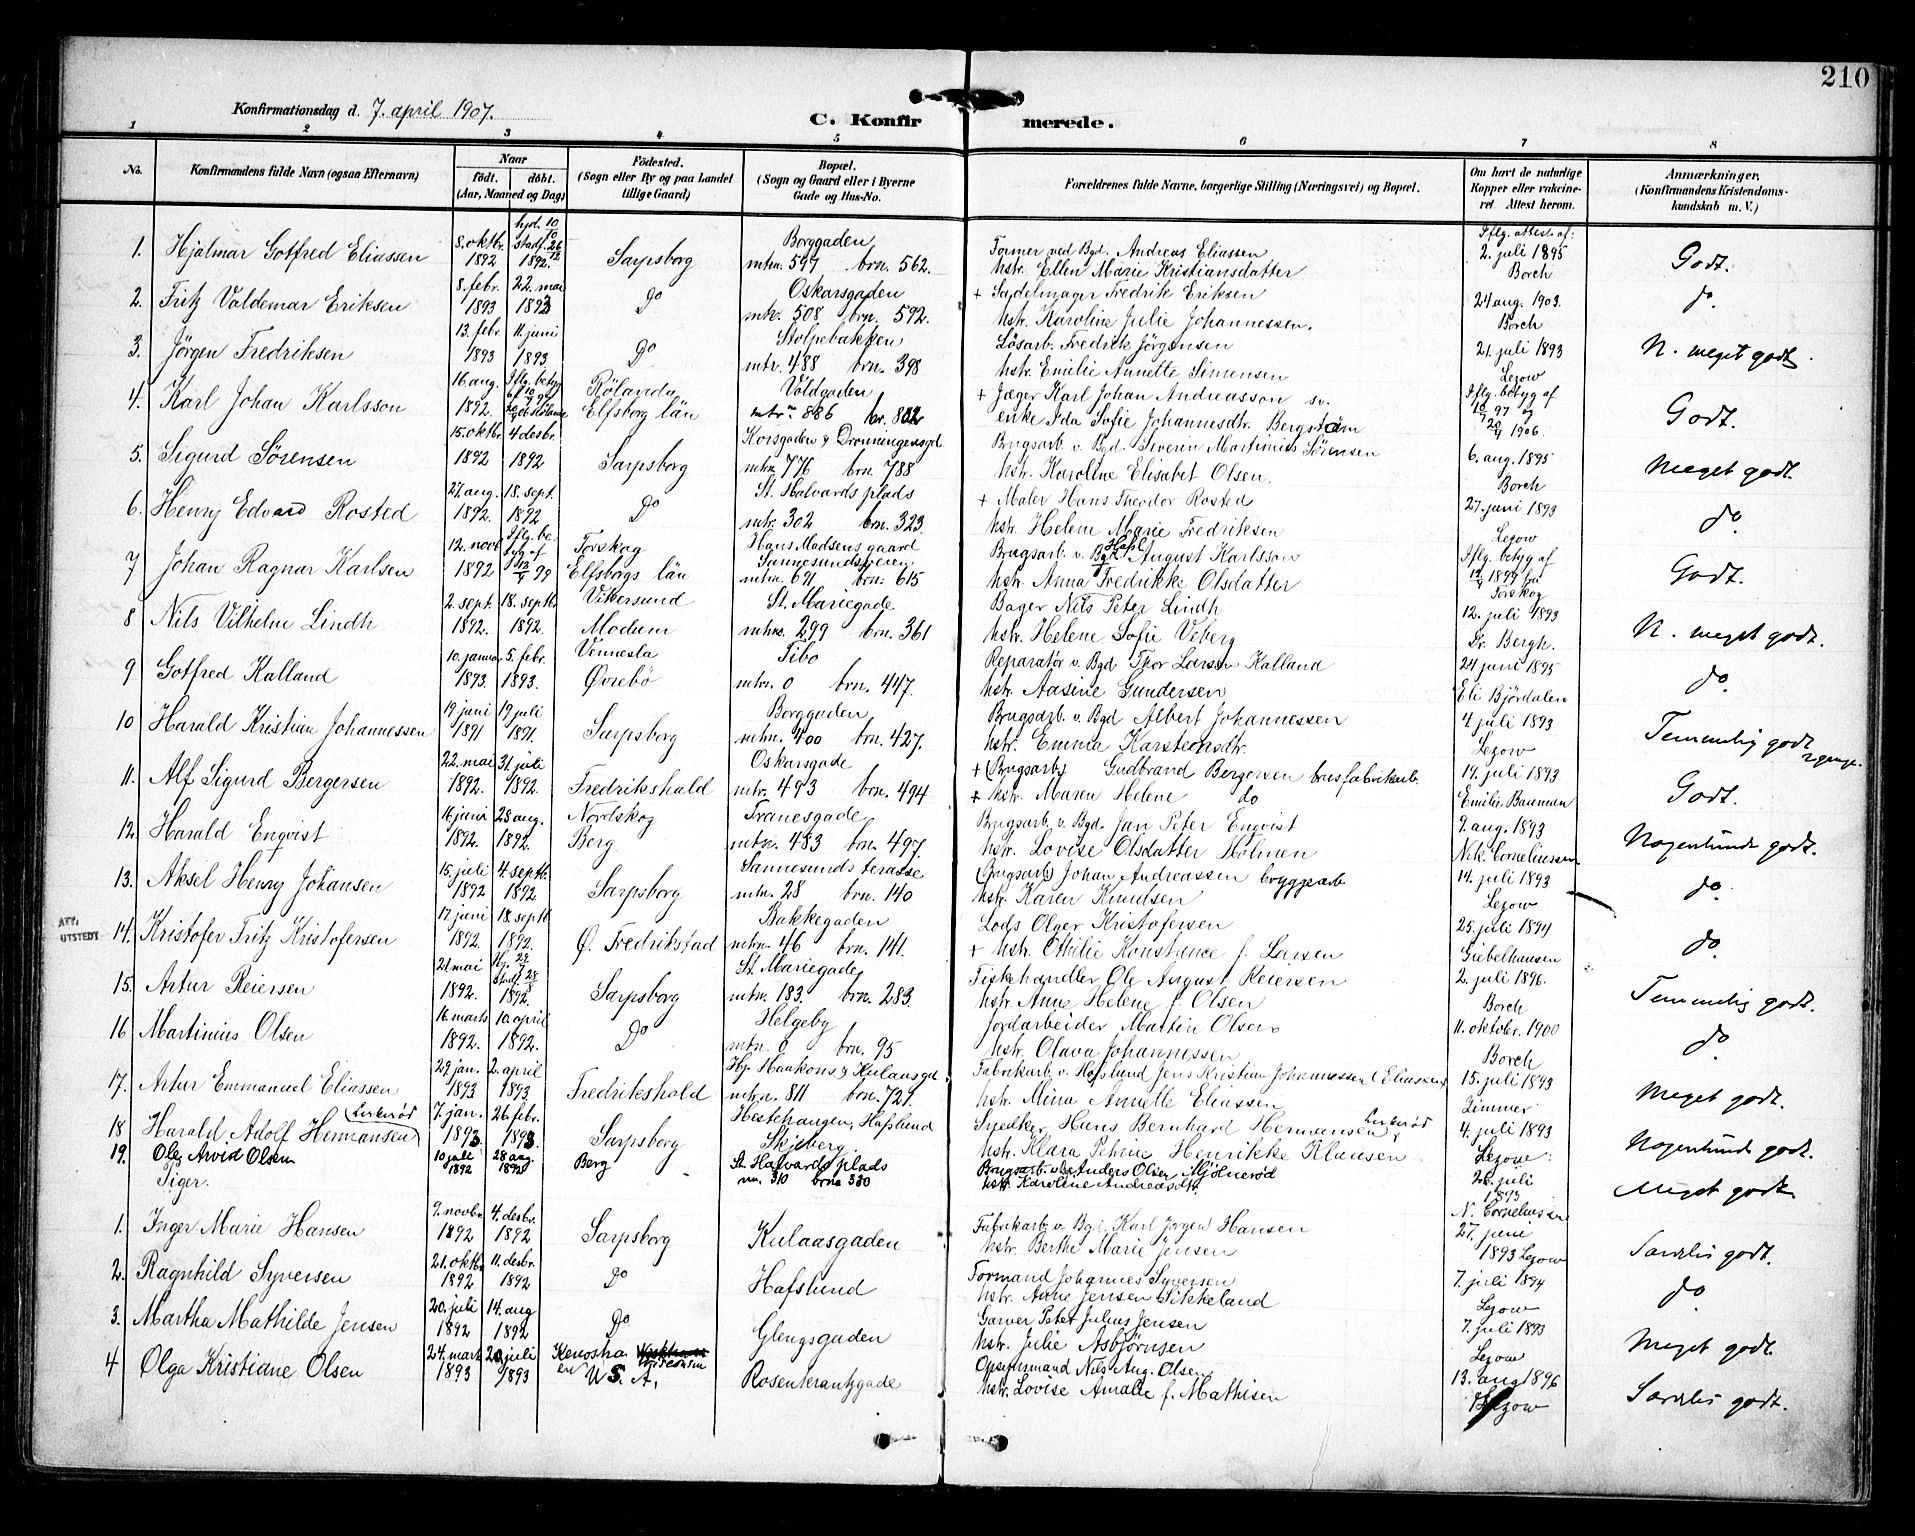 210
Konfirmationsdag d. 7. april 1907.
C. Konfirmerede.
1 2 3 4 5 6 7 8
No.
Konfirmandens fulde Navn (ogsaa Efternavn)
Naar
födt. döbt.
(Aar, Maaned og Dag)
Födested.
(Sogn eller By og paa Landet
tillige Gaard)
Bopæl.
(Sogn og Gaard eller i Byerne
Gade og Hus-No.
Forældrenes fulde Navne, borgerlige Stilling (Næringsvei) og Bopæl.
Om havt de naturlige
Kopper eller vakcine-
ret. Attest herom.
Anmærkninger.
(Konfirmandens Kristendoms-
kundskab m. V.)
1. Hjalmar Gotfred Eliassen
8. oktbr. 1892
hjd. 10/10 Stadf. 26/12 1892.
Sarpsborg
Borggaden
mtrn. 597 brn. 562.
Former ved Bgd. Andreas Eliassen
hstr. Ellen Marie Kristiansdatter
Iflg. attest af:
2. juli 1895
Borch
Godt.
2. Fritz Valdemar Eriksen
8. febr. 1893
22. mai 1893
Do
Oskarsgaden
mtr. 508 brn. 592.
+ Sadelmager Fredrik Eriksen
hstr. Karoline Julie Johannessen.
24 aug. 1903.
Borch
do.
3. Jörgen Fredriksen
13. febr. 1893
11. juni 1893
Do
Stolpebakken
mtr. 488 brn. 398
Lösarb. Fredrik Jörgensen
hstr. Emilie Annette Simensen
21. juli 1893
Lezow
N. meget godt.
4. Karl Johan Karlsson
16. aug. 1892.
Iflg. betyg af
Rölanda
Elfsborg län
Voldgaden
mtr. 886 br. 802
+ Jæger Karl Johan Andreasson sv.
enke Ida Sofie Johannesdtr. Bergström
Iflg. betyg af
10/9 97 og
20/4 1906.
Godt.
5. Sigurd Sörensen
15. oktbr. 1892
4 desbr. 1892
Sarpsborg
Korsgaden & Dronningensgd.
mtrn. 776 brn. 788
Brugsarb. v. Bgd. Severin Martinius Sörensen
hstr. Karoline Elisabet Olsen.
6. aug. 1895
Borch
Meget godt.
6. Henry Edvard Rosted
27. aug. 1892.
18. sept. 1892
Do
St. Halvards plads
mtr. 302 brn. 323.
+ Maler Hans Theodor Rosted
hstr. Helene Marie Fredriksen
27. juni 1893
Lezow
do.
7 Johan Ragnar Karlsen
12. novb. 1892
Iflg. be-
tyg af
12/4 99
Torskog
Elfsborgs län
Hans Madsens gaard
Sannesundsveien
mtrn. 691 brn: 615
Brugsarb. v. Hafsl. August Karlsson
hstr. Anna Fredrikke Olsdatter
Iflg. betyg af
12/4 1899 fra
Torskog
Godt.
8 Nils Vilhelm Lindh
2. sept. 1892.
18. septb. 1892.
Vikersund
Modum
St. Mariegade
mtrn. 299 brn. 361
Bager Nils Peter Lindh
hstr. Helene Sofie Veberg
12. juli 1893
Dr. Bergh.
N. meget godt.
9 Gotfred Kalland
10. januar 1893.
5. febr. 1893.
Vennesla
Øvrebö
Tibo
mtrn. 0 brn. 447.
Reparatör v. Bgd. Thor Larsen Kalland
hstr. Aasine Gundersen
24 juni 1895
Eli Björdalen
do.
10 Harald Kristian Johannessen
19 juni 1891
19 juli 1891.
Sarpsborg
Borggaden
mtrn. 400 brn. 427.
Brugsarb. v. Bgd Albert Johannessen
hstr. Emma Karstensdtr.
4 juli 1893
Lezow
Temmelig godt
11. Alf Sigurd Bergersen
22. mai 1892.
31. juli 1892.
Fredrikshald
Oskarsgade
mtr. 493 brn. 494
+ (Brugsarb.) Gudbrand Bergersen brusfabrikarb.
+ hstr. Maren Helene do
19. juli 1893
Emilie Bauman
Godt.
12. Harald Enqvist
16. juni 1892.
28 aug. 1892.
Nordskog
Berg
Tranesgade
mtrn. 483 brn. 497.
Brugsarb. v. Bgd. Jan Peter Enqvist
hstr. Lovise Olsdatter Holmen
9. aug. 1893
Nik. Corneliussen
Nogenlunde godt.
13. Aksel Henry Johansen
15. juli 1892
4. septb. 1892.
Sarpsborg
Sannesunds terasse
mtr. 28 brn. 140
(Brugsarb) Johan Andreassen bryggearb
hstr. Karen Knudsen
14. juli 1893
Lezow
do.
ATT.
UTSTEDT
14. Kristofer Fritz Kristofersen
17. juni 1892.
18. septb. 1892.
Ø. Fredrikstad
Bakkegaden
mtrn. 46 brn. 141.
Lods Olger Kristofersen
+ hstr. Othilie Konstance f. Larsen
25. juli 1894
Giebelhausen
do.
15. Artur Reiersen
21. mai 1892.
Hj. 29/7 Stadf. 28/8 1892.
Sarpsborg
St. Mariegade
mtr. 183. brn. 283
Fiskehandler Ole August Reiersen
hstr. Anne Helene f. Olsen
2. juli 1896.
Borch
Temmelig godt.
16 Martinius Olsen
16. marts 1892.
10. april 1892.
Do
Helgeby
mtrn. 0 brn. 95
Jordarbeider Martin Olsen
hstr. Olava Johannessen
11. oktobr. 1900
Borch
do.
17. Artur Emmanuel Eliassen
29. jan. 1893
2. april 1893
Fredrikshald
Hj. Haakons & Kulaasgd
mtrn. 811 brn. 729.
Fabrikarb. v. Hafslund Jens Kristian Johannessen (Eliassen)
hstr. Mina Annette Eliassen
15. juli 1893
Zimmer
Meget godt.
18 Harald Adolf Hermansen
7. jan. 1893.
26. febr. 1893.
Sarpsborg
Hestehaugen, Hafslund
Skjeberg.
Snedker Hans Bernhard Hermansen
hstr. Klara Petrine Henrikke Klausen
4. juli 1893
Lezow
Nogenlunde godt.
19. Ole Arvid Olsen
10 juli 1892
28 aug. 1892
Berg
St. Halvards plads
mn. 310 brn. 330
Brugsarb. Anders Olsen Mjölnerød
hstr. Karoline Andreasdtr.
26. juli 1893
N. Corneliussen
Meget godt.
Piger.
1. Inger Marie Hansen
9. novbr. 1892
4. desbr. 1892
Sarpsborg
Kulaasgaden
Fabrikarb. v. Bgd. Karl Jørgen Hansen
hstr. Berthe Marie Jensen
27. juni
1893 Lezow
Særdeles godt.
2. Ragnhild Syversen
21. oktbr. 1892
11. desbr. 1892
Do
Hafslund
Formand Johannes Syversen
hstr. Anne Jensen Sikkeland
7. juli 1894
Lezow
do.
3. Martha Mathilde Jensen
20. juli 1892
14. aug 1892
Do
Glengsgaden
Garver Peter Julius Jensen
hstr. Julie Asbjörnsen
7. juli 1893
Lezow
Meget godt.
4 Olga Kristiane Olsen
24. marts 1893
20 juli 1893
Kenosha
U. S. A.
Rosenkrantzgade
Opsynsmand Nils Aug. Olsen
hstr. Lovise Amalie f. Mathisen
13. aug 1896
Lezow
Særdeles godt.